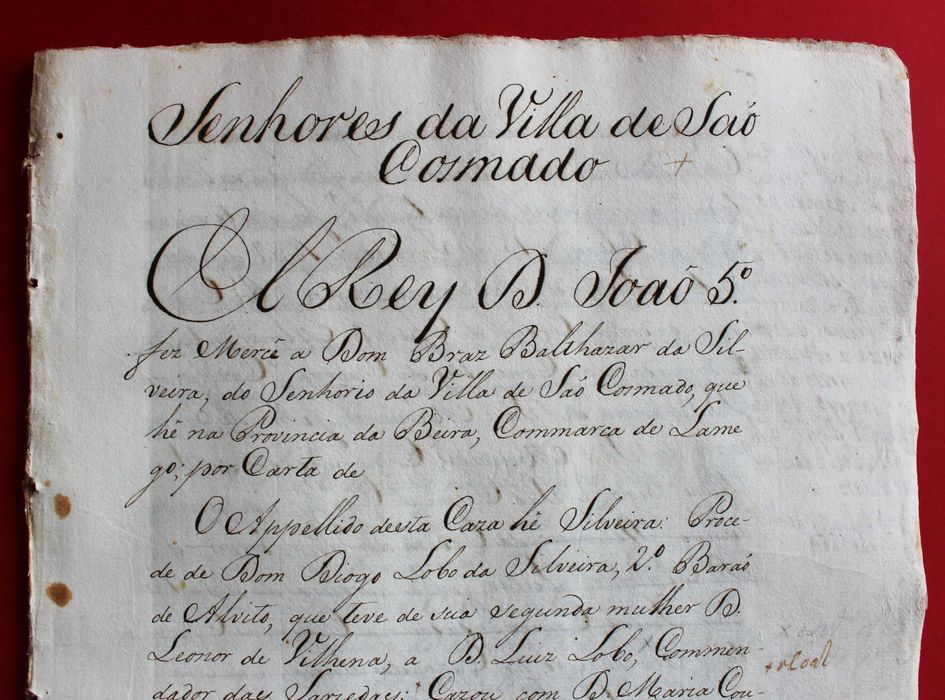 Senhores da Villa de Saõ
Cosmado +
El Rey D. Joaõ 5.º
fez Mercê a Dom Braz Balthazar da Sil-
veira, do Senhorio da Villa de Saõ Cosmado, que
hê na Provincia da Beira, Commarca de Lame
go; por Carta de
O Appellido desta Caza hê Silveira: Proce-
de de Dom Diogo Lobo da Silveira, 2.º Baraõ
de Alvito, que teve de sua segunda mulher D.
Leonor de Vilhena, a D. Luiz Lobo, Commen-
dador das Sarzedas: Cazou com D. Maria Cou-